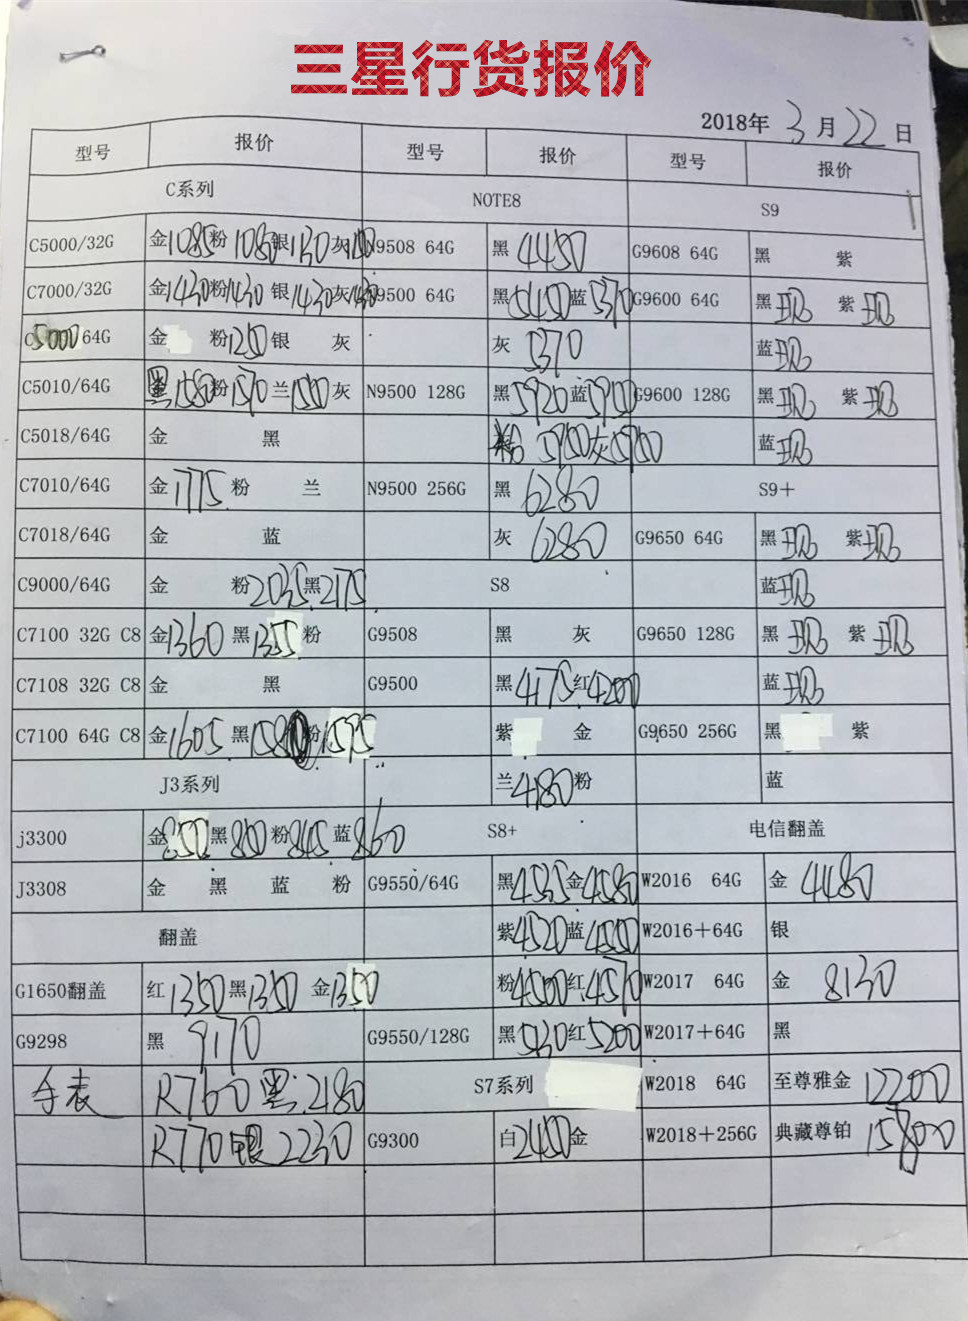 三星行货报价
2018年 3月22日
型号 报价 型号 报价 型号 报价
C系列 NOTE8 S9
C5000/32G 金1085 粉1080 银1130 灰 N9508 64G 黑 4450 G9608 64G 黑 紫
C7000/32G 金1430 粉1430 银1430 灰1430 N9500 64G 黑5450 蓝5370 G9600 64G 黑现 紫现
C5000 64G 金 粉1250 银 灰 灰 5370 蓝现
C5010/64G 黑1580 粉1570 兰1550 灰 N9500 128G 黑5920 蓝5900 G9600 128G 黑现 紫现
C5018/64G 金 黑 粉 5950 灰5950 蓝现
C7010/64G 金1775 粉 兰 N9500 256G 黑 6280 S9+
C7018/64G 金 蓝 灰 6280 G9650 64G 黑现 紫现
C9000/64G 金 粉2035 黑2175 S8 蓝现
C7100 32G C8 金1360 黑1355 粉 G9508 黑 灰 G9650 128G 黑现 紫现
C7108 32G C8 金 黑 G9500 黑4175 红4200 蓝现
C7100 64G C8 金1605 黑1580 粉1595 紫 金 G9650 256G 黑 紫
J3系列 兰4180 粉 蓝
j3300 金850 黑850 粉845 蓝860 S8+ 电信翻盖
J3308 金 黑 蓝 粉 G9550/64G 黑4565 金4580 W2016 64G 金 4480
翻盖 紫4520 蓝4550 W2016+64G 银
G1650翻盖 红1350 黑1350 金1350 粉4500 红4570 W2017 64G 金 8130
G9298 黑 9170 G9550/128G 黑5130 红5200 W2017+64G 黑
手表 R760 黑:2180 S7系列 W2018 64G 至尊雅金 12200
R770 银 2230 G9300 白2450 金 W2018+256G 典藏尊铂 15800